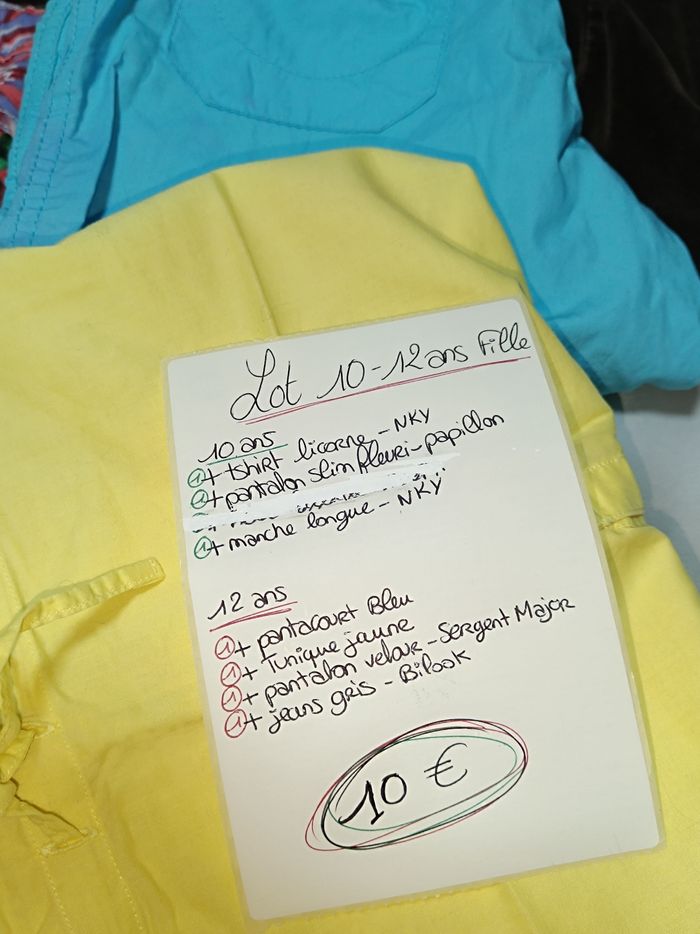 Lot 10-12 ans Fille
10 ans
1+ tshirt licorne - NKY
1+ pantalon slim fleuri - papillon
1+ manche longue - NKY
12 ans
1+ pantacourt Bleu
1+ Tunique jaune
1+ pantalon velour - Sergent Major
1+ jeans gris - Bilook
10 €